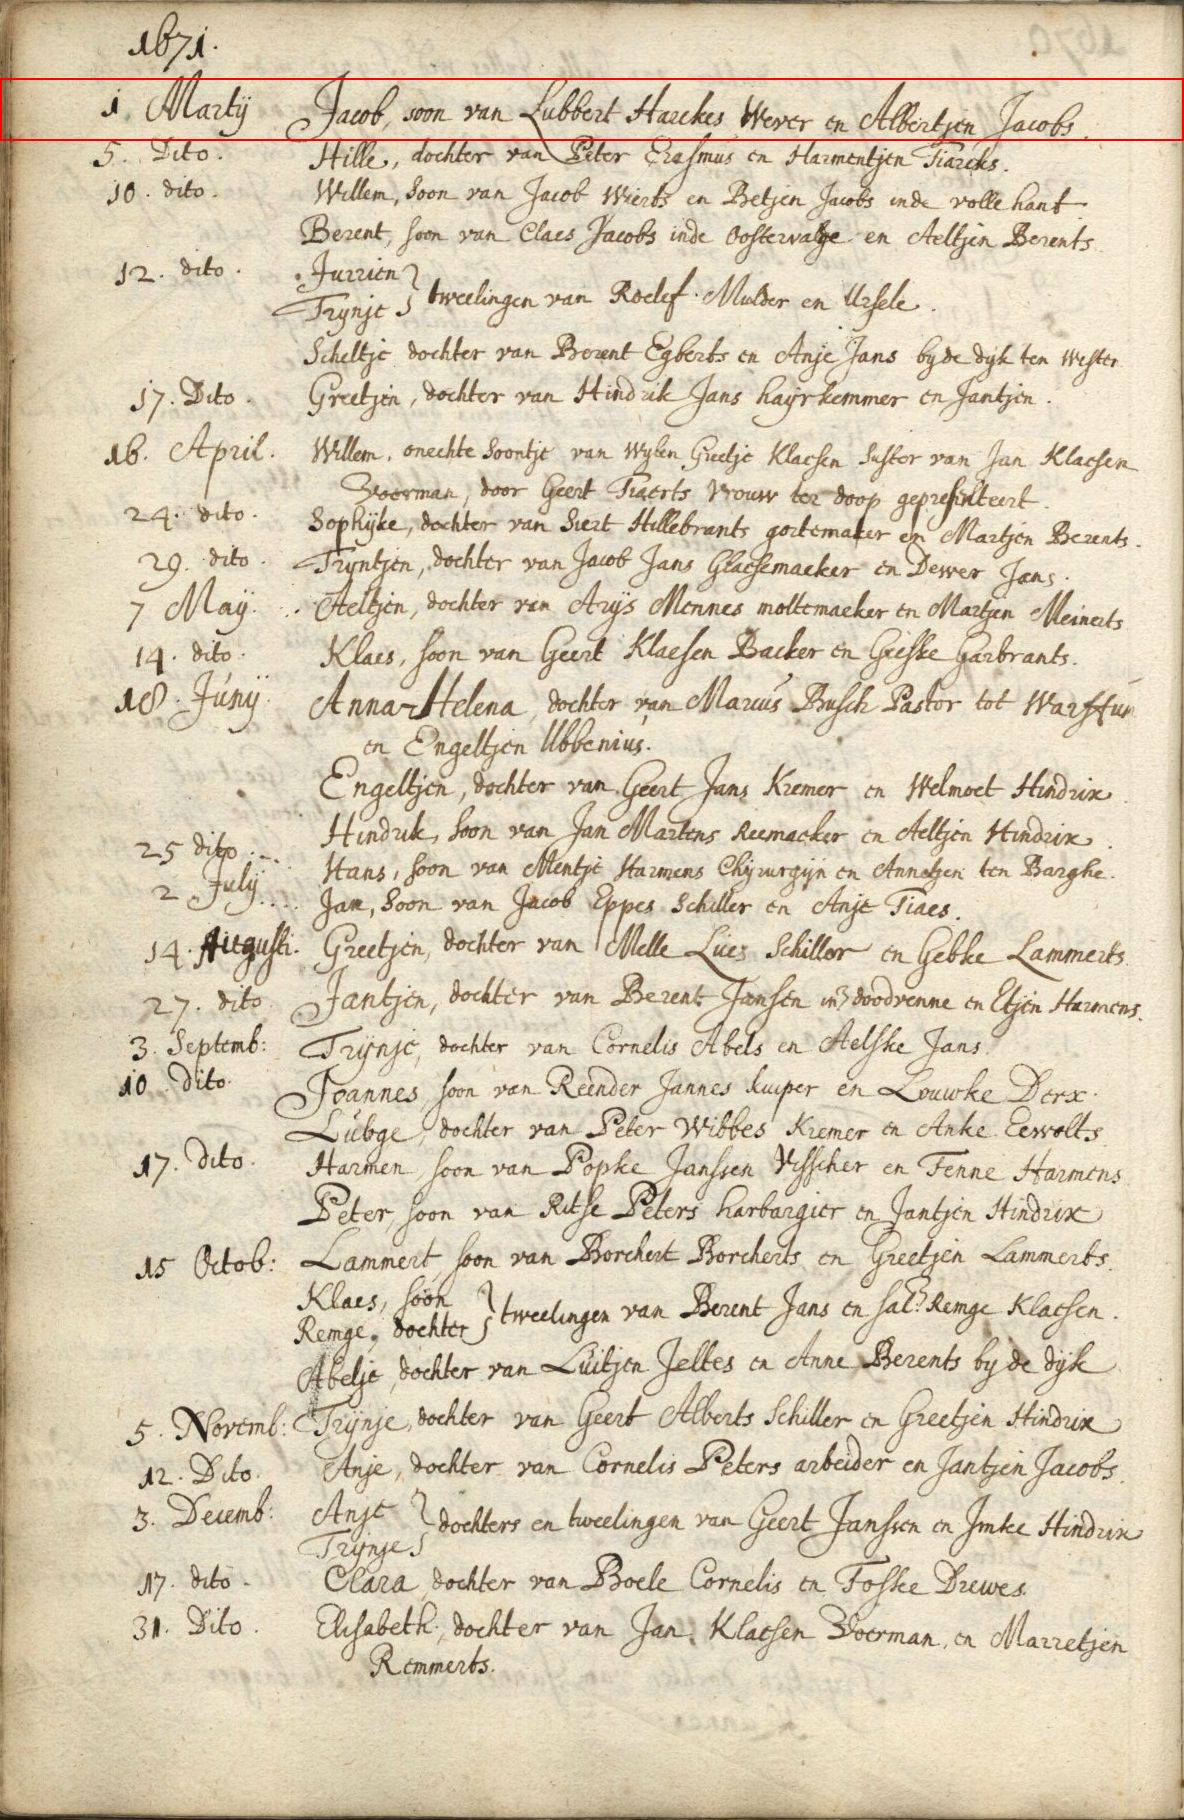 1671.
1 Martij Jacob, soon van Lubbert Harckes Wever en Albertjen Jacobs.
5. Dito. Hille, dochter van Peter Erasmus en Harmentjen Tiarcks.
10. dito. Willem, soon van Jacob Wierts en Betjen Jacobs inde volle hant
Berent, soon van Claes Jacobs inde Oosterwalge en Aeltjen Berents
12. dito. Jurrien
Trynje } tweelingen van Roelef Mulder en Ursele.
Scheltje dochter van Berent Egberts en Anje Jans by de dyk ten Wester
17. Dito. Greetjen, dochter van Hindrik Jans hayrkemmer en Jantjen.
16. April. Willem, onechte soontje van Wylen Greetje Klaesen suster van Jan Klaesen
Voerman, door Geert Tiaerts vrouw ter doop gepresenteert.
24. dito. Sophyke, dochter van Siert Hillebrants gortemaker en Martjen Berents.
29. dito. Tryntjen, dochter van Jacob Jans Glaesemaeker en Dewer Jans.
7 May. Aeltjen, dochter van Arys Mennes moltemaeker en Martjen Meinerts
14. dito. Klaes, soon van Geert Klaesen Backer en Gieske Garbrants.
18. Junij Anna-Helena, dochter van Marcus Busch Pastor tot Warffum
en Engeltjen Ubbenius.
Engeltjen, dochter van Geert Jans Kremer en Welmoet Hindrix.
25 dito. Hindrik, soon van Jan Martens Reemaeker en Aeltjen Hindrix.
2 July Hans, soon van Mentje Harmens Chyrurgyn en Annetjen ten Barghe.
Jan, soon van Jacob Eppes Schiller en Anje Tiaes.
14. Augusti. Greetjen, dochter van Melle Lues Schiller en Gebke Lammerts
27. dito Jantjen, dochter van Berent Jansen in doodvenne en Etjen Harmens.
3. Septemb: Trijnje, dochter van Cornelis Abels en Aelske Jans.
10 dito. Joannes, soon van Reender Jannes kuiper en Louwke Derx.
Lubge, dochter van Peter Wibbes Kremer en Anke Eewolts
17. Dito. Harmen, soon van Popke Janssen Visscher en Fenne Harmens
Peter, soon van Ritse Peters harbargier en Jantjen Hindrix
15 Octob: Lammert soon van Borchert Borcherts en Greetjen Lammerts.
Klaes, soon
Remge, dochter } tweelingen van Berent Jans en sal: Remge Klaesen.
Abelje, dochter van Luitjen Jelles en Anne Berents by de dyk
5. Novemb: Trijnje, dochter van Geert Alberts Schiller en Greetjen Hindrix
12. Dito. Anje, dochter van Cornelis Peters arbeider en Jantjen Jacobs.
3. Decemb: Anje
Trijnje } dochters en tweelingen van Geert Janssen en Imke Hindrix
17. dito. Clara, dochter van Boele Cornelis en Foske Drewes.
31. Dito. Elisabeth, dochter van Jan Klaesen Voerman, en Marretjen
Remmerts.